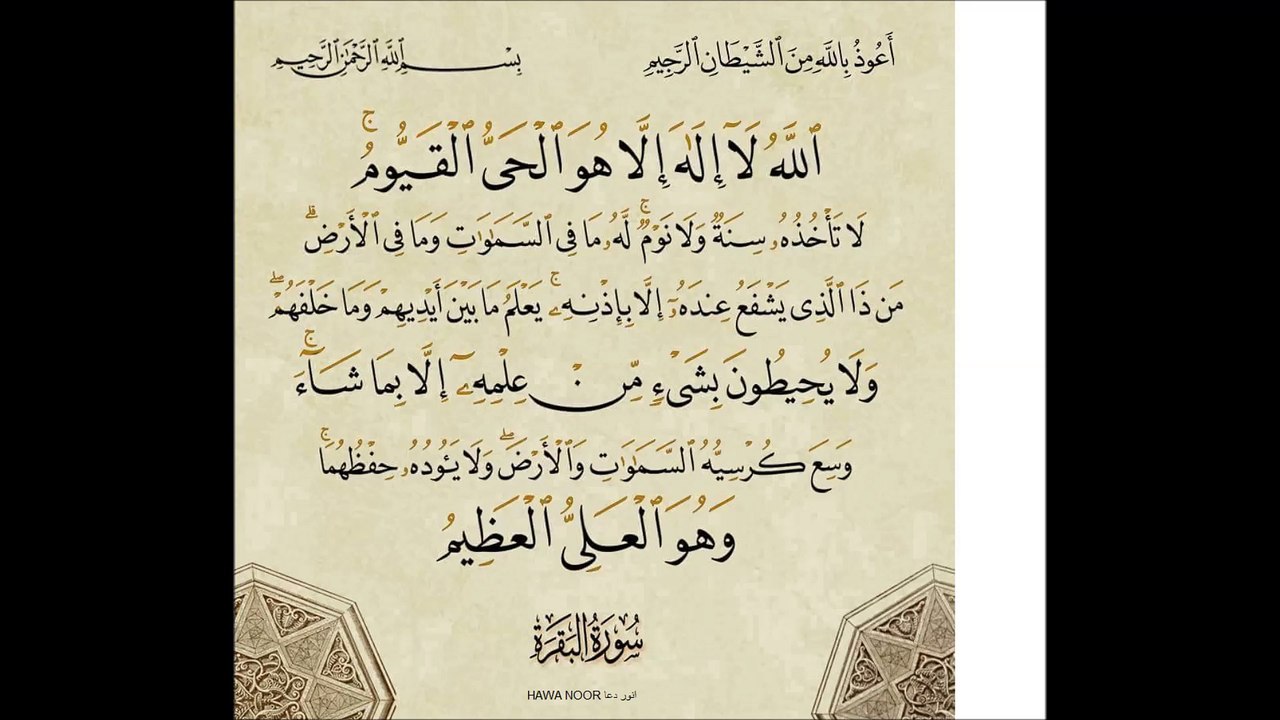 أَعُوذُ بِٱللَّهِ مِنَ ٱلشَّيْطَانِ ٱلرَّجِيمِ بِسْمِ ٱللَّهِ ٱلرَّحْمَٰنِ ٱلرَّحِيمِ
ٱللَّهُ لَآ إِلَٰهَ إِلَّا هُوَ ٱلْحَىُّ ٱلْقَيُّومُ ۚ
لَا تَأْخُذُهُۥ سِنَةٌ وَلَا نَوْمٌ ۚ لَّهُۥ مَا فِى ٱلسَّمَٰوَٰتِ وَمَا فِى ٱلْأَرْضِ ۗ
مَن ذَا ٱلَّذِى يَشْفَعُ عِندَهُۥٓ إِلَّا بِإِذْنِهِۦ ۚ يَعْلَمُ مَا بَيْنَ أَيْدِيهِمْ وَمَا خَلْفَهُمْ ۖ
وَلَا يُحِيطُونَ بِشَىْءٍ مِّنْ عِلْمِهِۦٓ إِلَّا بِمَا شَآءَ ۚ
وَسِعَ كُرْسِيُّهُ ٱلسَّمَٰوَٰتِ وَٱلْأَرْضَ ۖ وَلَا يَـُٔودُهُۥ حِفْظُهُمَا ۚ
وَهُوَ ٱلْعَلِىُّ ٱلْعَظِيمُ
سُورَةُ الْبَقَرَةِ
HAWA NOOR انور دعا